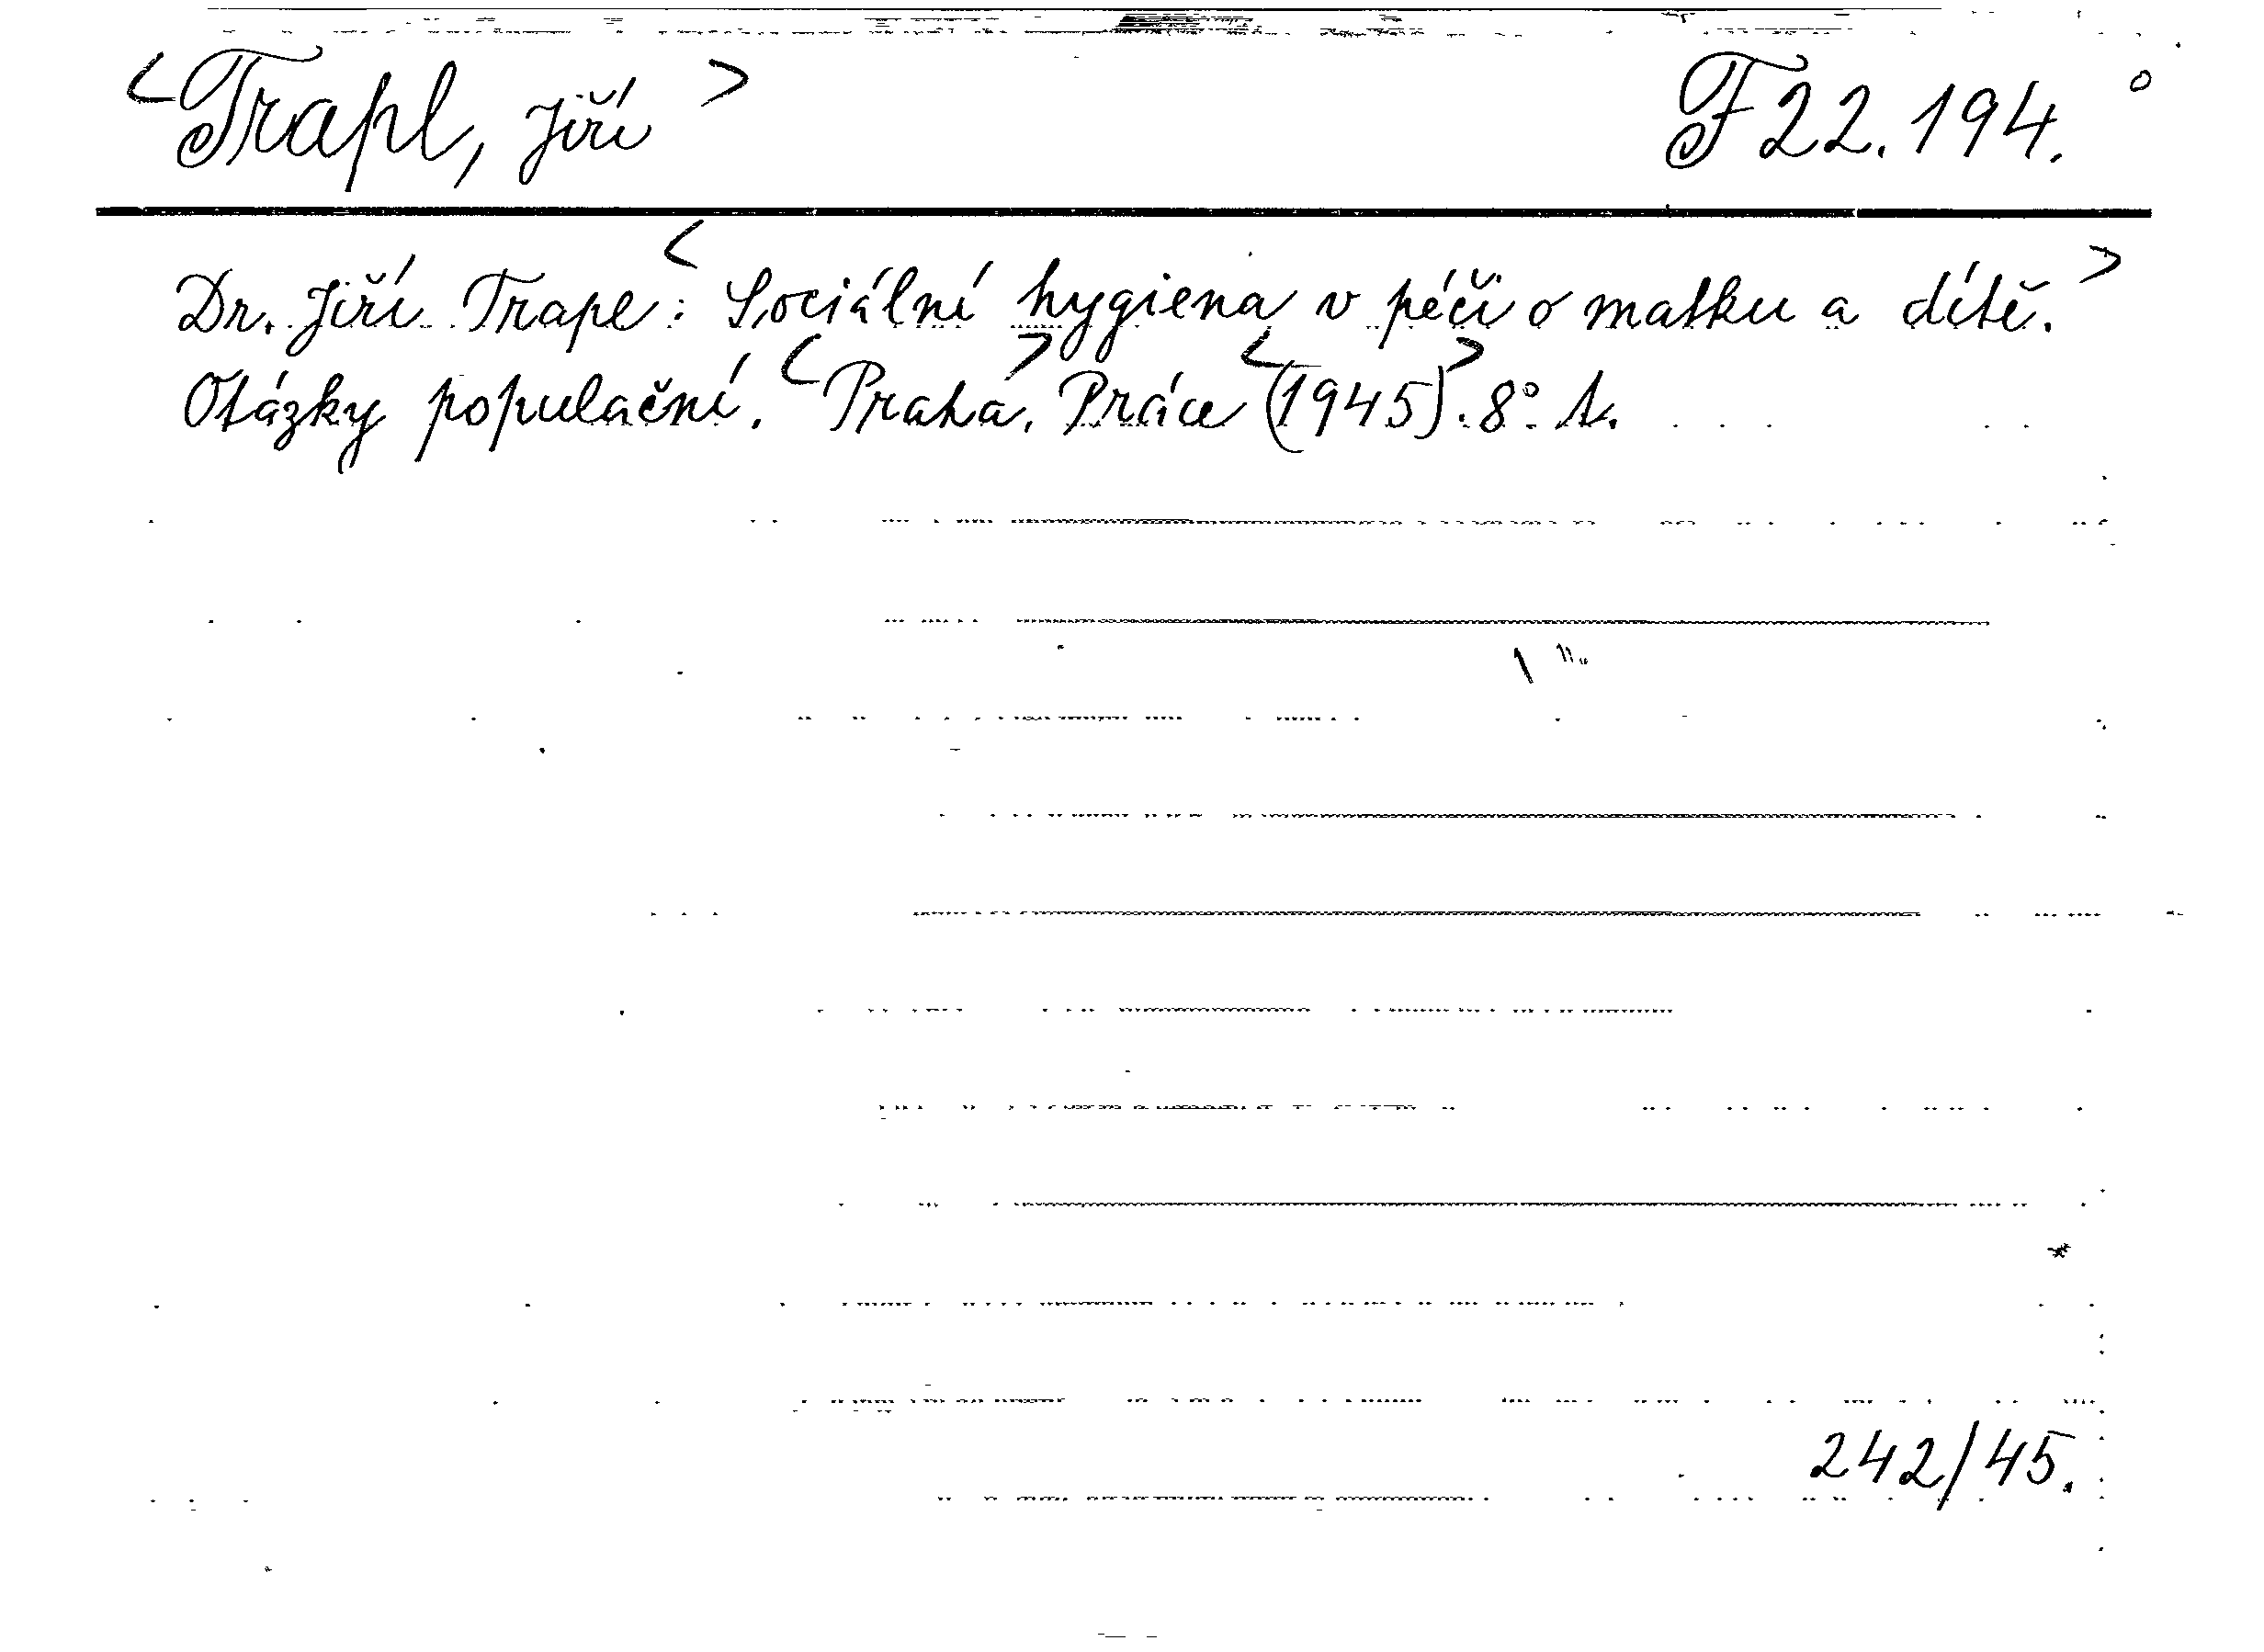 <Trapl, Jiří> F 22.194.°
Dr. Jiří Trapl: <Sociální hygiena v péči o matku a dítě.>
Otázky populační. <Praha>, Práce <(1945)>. 8°.
242/45.